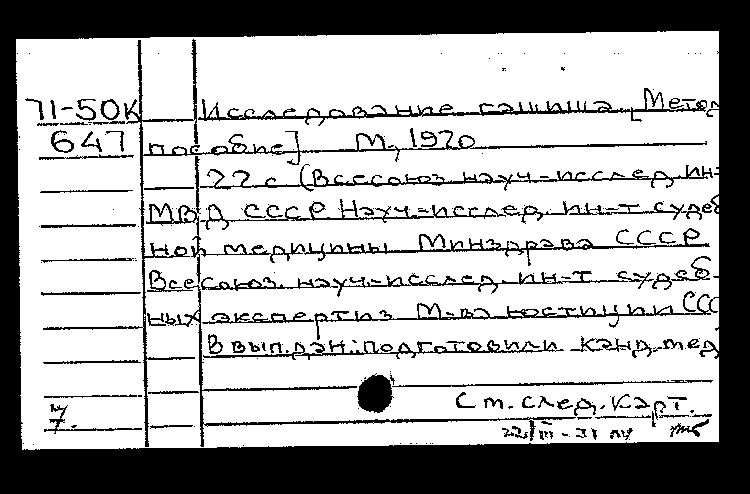 71-50К Исследование гашиша. [Метод
647 пособие] М., 1970
22 с (Всесоюз науч-исслед. ин-
МВД СССР Науч.-исслед. ин-т судеб
ной медицины Минздрава СССР
Всесоюз. науч.-исслед. ин-т судеб-
ных экспертиз М-ва юстиции ССС
В вып. дан.: подготовили канд. мед
См. след. карт.
7.
22/III-71